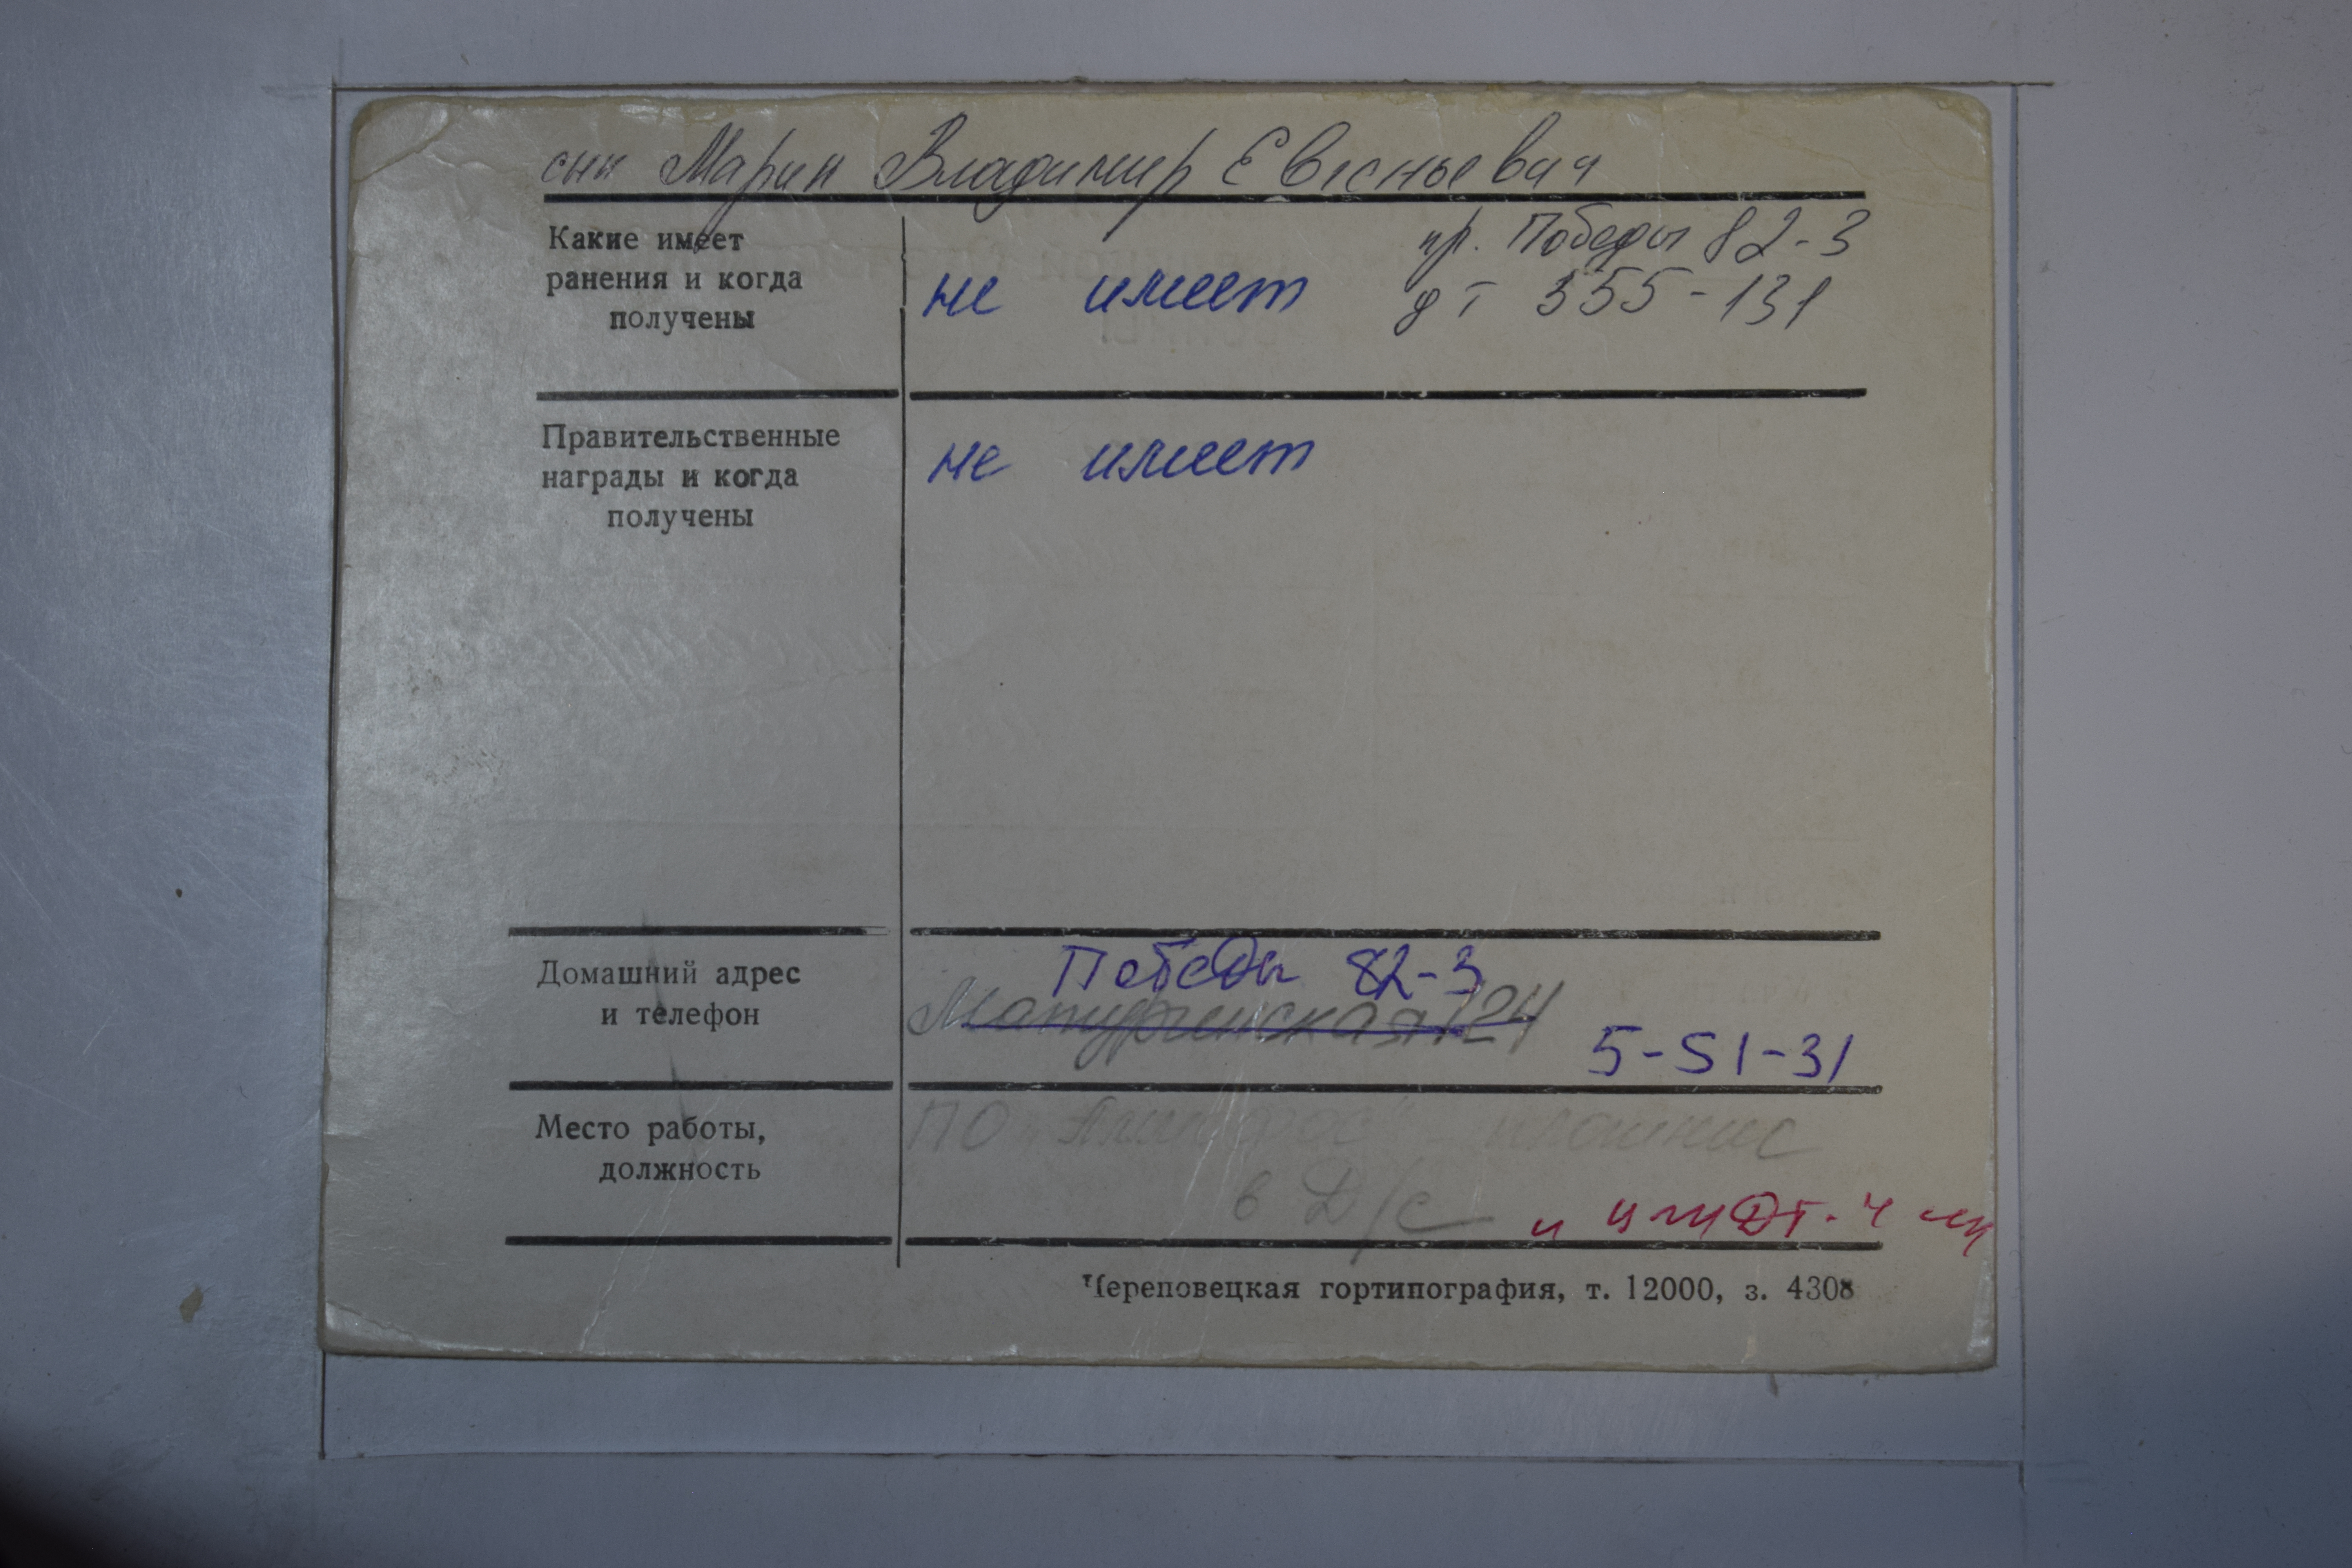 сын Марин Владимир Евгеньевич
Какие имеет
ранения и когда
получены
не имеет
пр. Победы 82-3
дт 555-131
Правительственные
награды и когда
получены
не имеет
Домашний адрес
и телефон
Победы 82-3
124
5-51-31
Место работы,
должность
ПО
в Д/с
Череповецкая гортипография, т. 12000, з. 4308